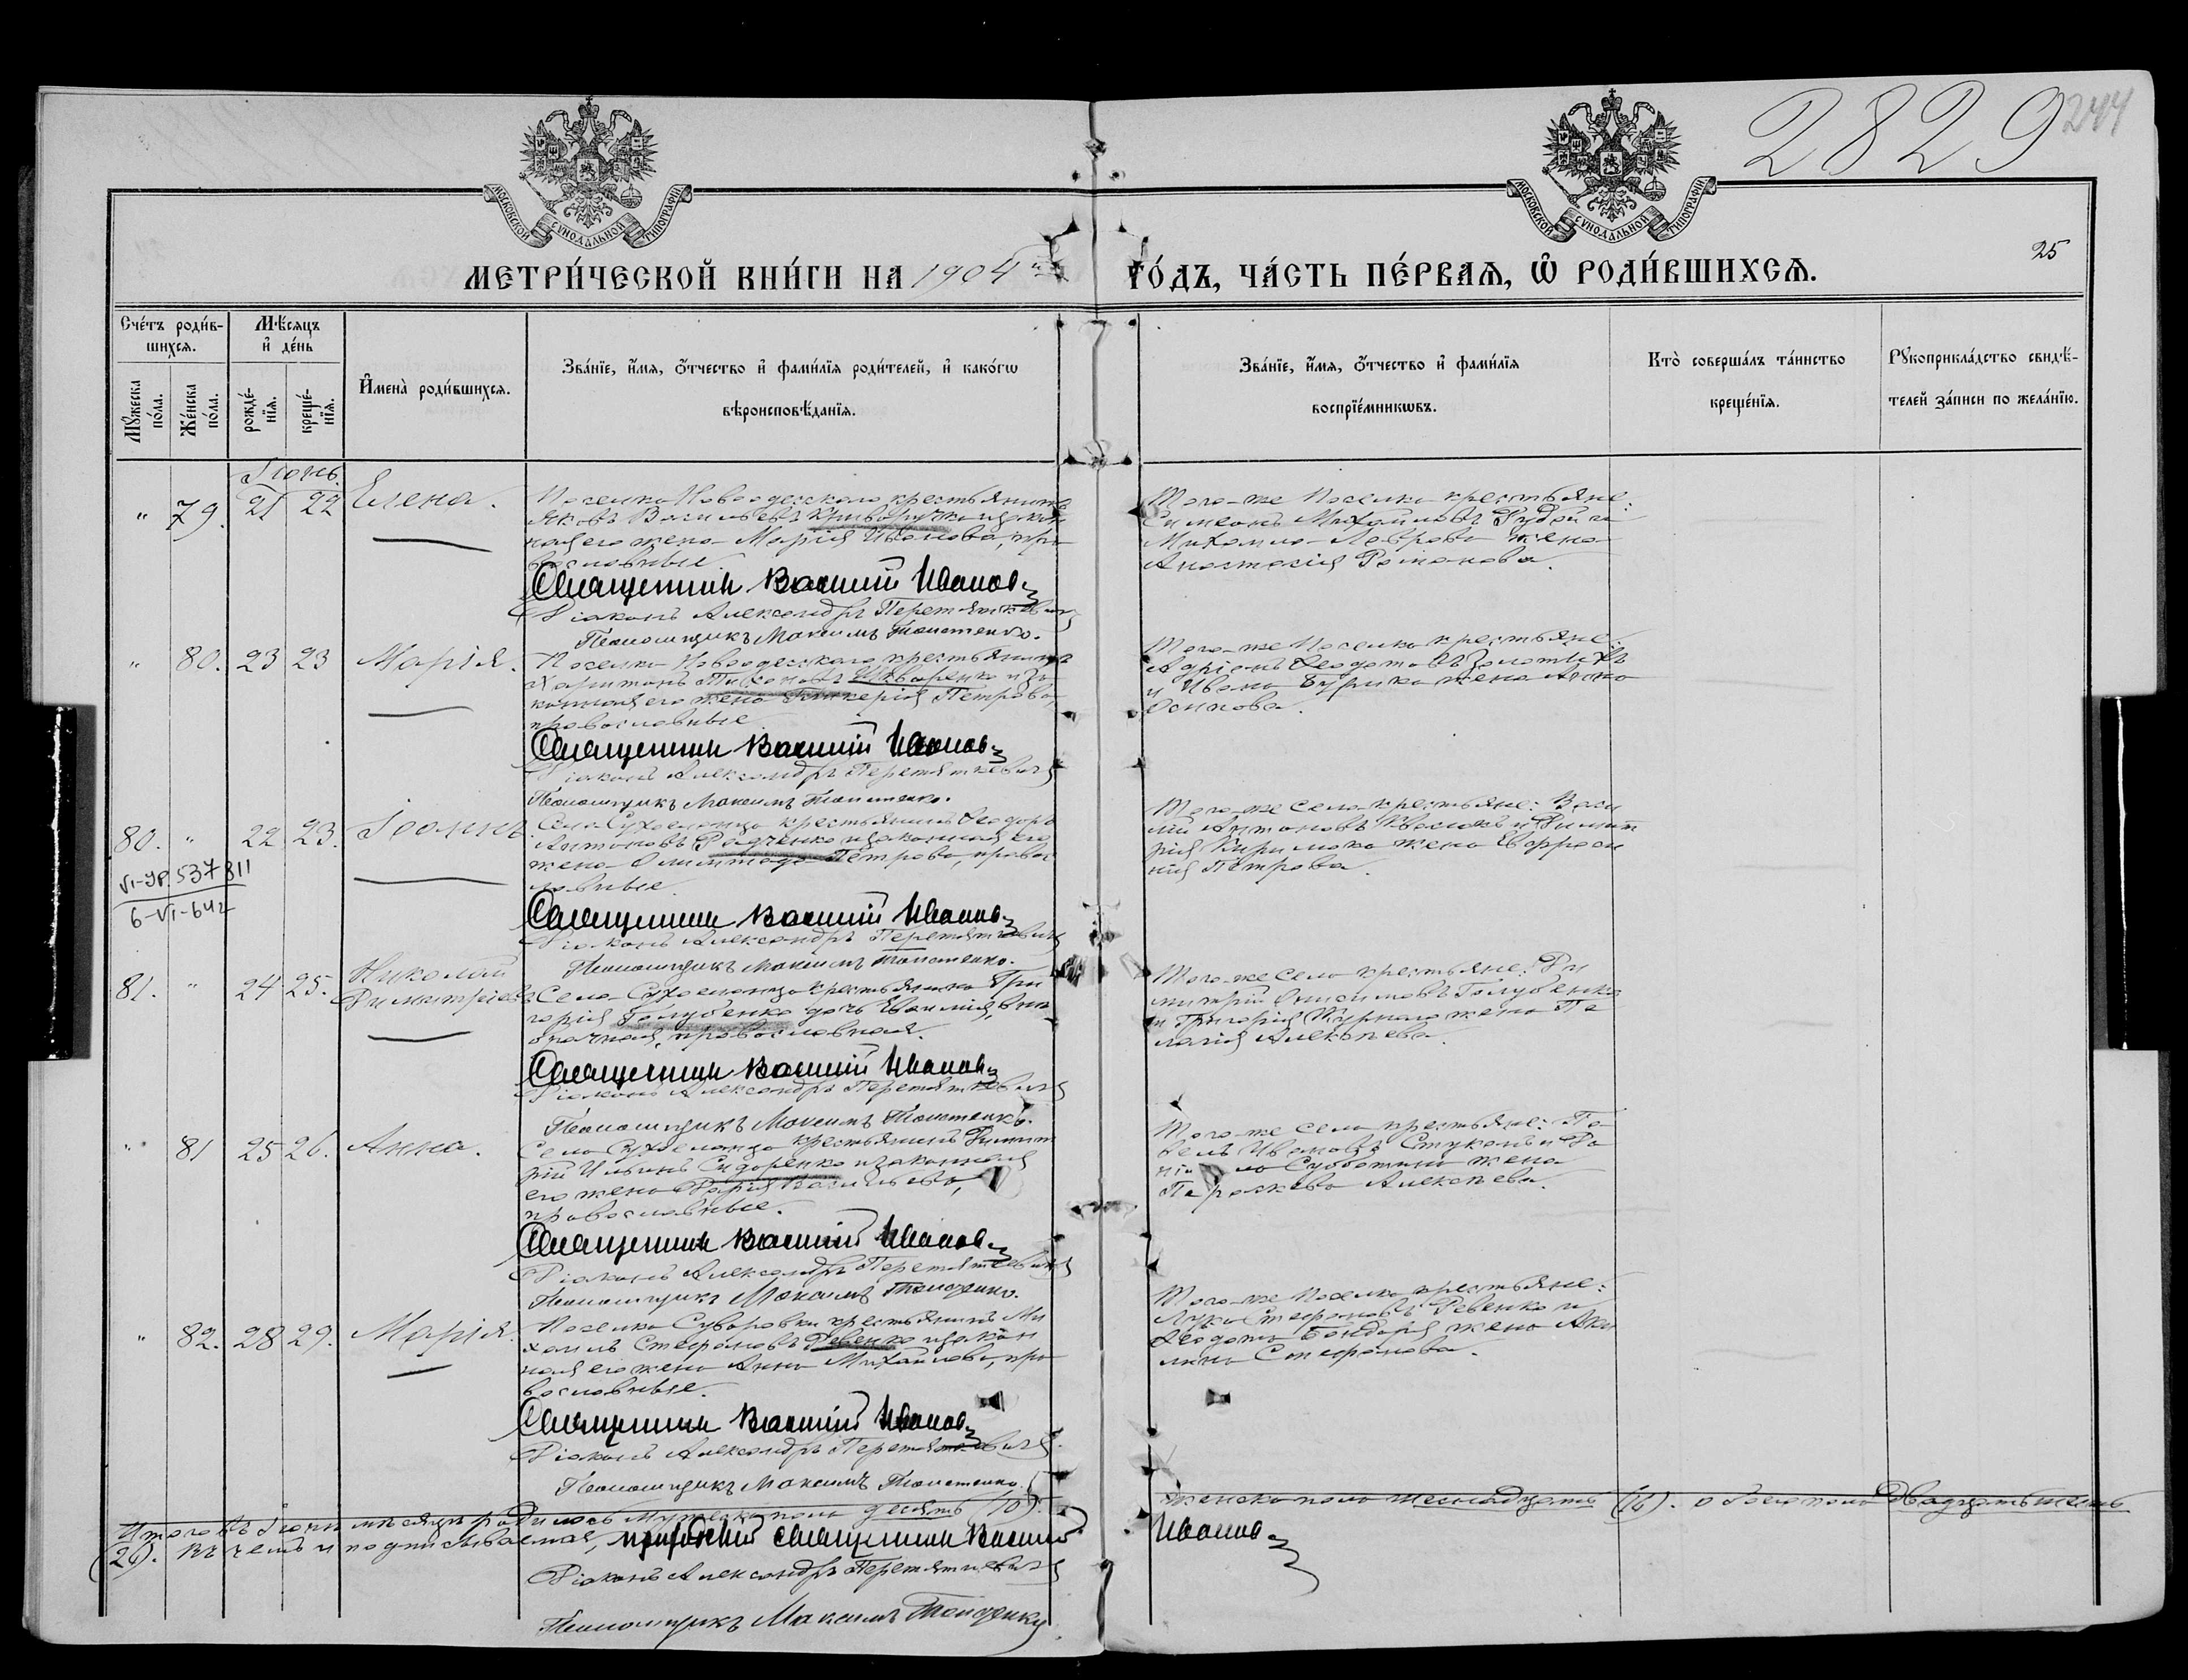 2829
244
МОСКОВСКОЙ СѴНОДАЛЬНОЙ ТИПОГРАФІИ
МОСКОВСКОЙ СѴНОДАЛЬНОЙ ТИПОГРАФІИ
25
МЕТРИ́ЧЕСКОЙ КНИ́ГИ НА 1904 й ГО́ДЪ, ЧА́СТЬ ПЕ́РВАѦ, Ѽ РОДИ́ВШИХСѦ.
Сче́тъ роди́в-
шихсѧ.
Мѣ́сяцъ
и҆ де́нь
Мꙋ́жеска по́ла.
Же́нска по́ла.
рожде́-
нїѧ.
креще́-
нїѧ.
И҆мена̀ роди́вшихсѧ.
Зва́нїе, и҆́мѧ, ѻ҆́тчество и҆ фами́лїѧ роди́телей, и҆ како́гѡ
вѣроисповѣ́данїѧ.
Зва́нїе, и҆́мѧ, ѻ҆́тчество и҆ фами́лїѧ
воспрїе́мникѡвъ.
Кто̀ соверша́лъ та́инство
креще́нїѧ.
Рꙋкоприкла́дство свидѣ́-
телей за́писи по жела́нїю.
Іюнь.
" 79. 21 22 Елена.
Поселка Новоодесскаго крестьянинъ
Яковъ Васильевъ Криворучко и закон
ная его жена Марія Иванова, пра
вославные.
Священникъ Василій Иванов
Діаконъ Александръ Перетяткевичъ
Псаломщикъ Максимъ
Того-же Поселка крестьяне:
Симеонъ Михайловъ Рудой и
Михаила Лаврова жена
Анастасія Романова.
" 80. 23 23 Марія.
Поселка Новоодесскаго крестьянинъ
Харитонъ Тихоновъ Шкваренко и за
конная его жена Гликерія Петрова,
православные
Священникъ Василій Иванов
Діаконъ Александръ Перетяткевичъ
Псаломщикъ Максимъ
Того-же Поселка крестьяне:
Адріанъ Ѳеодотовъ
и Ивана Бурлика жена Анна
Осипова.
80. " 22 23. Іоаннъ
VI-УР. 537811
6-VI-64г
Села Сухоеланца крестьянинъ Ѳеодоръ
Антоновъ Радченко и законная его
жена Олимпіада Петрова, правос
лавные
Священникъ Василій Иванов
Діаконъ Александръ Перетяткевичъ
Псаломщикъ Максимъ
Того-же села крестьяне: Васи
лій Антоновъ и Димит
рія Кирилюка жена Евфроси
нія Петрова.
81. " 24 25. Николай
Димитріевъ
Села Сухоеланца крестьянина Гри
горія Голубенко дочь Евфимія, вне
брачная, православная.
Священникъ Василій Иванов
Діаконъ Александръ Перетяткевичъ
Псаломщикъ Максимъ
Того-же села крестьяне: Ди
митрій Онисимовъ Голубенко
и Григорія жена Пе
лагія Алексѣева.
" 81 25 26. Анна.
Села Сухоеланца крестьянинъ Димит
рій Ильинъ Сидоренко и законная
его жена Дарія Васильева,
православные.
Священникъ Василій Иванов
Діаконъ Александръ Перетяткевичъ
Псаломщикъ Максимъ
Того-же села крестьяне: Па
велъ Ивановъ и Да
ніила Суботина жена
Параскева Алексѣева.
" 82. 28 29. Марія.
Поселка Суворовки крестьянинъ Ми
хаилъ Стефановъ Ревенко и закон
ная его жена Анна Михайлова, пра
вославные.
Священникъ Василій Иванов
Діаконъ Александръ Перетяткевичъ.
Псаломщикъ Максимъ
Того-же Поселка крестьяне:
Лука Стефановъ Ревенко и
Ѳеодота Бондаря жена Аки
лина Стефанова.
Итого въ Іюнѣ мѣсяцѣ родилось Мужеска пола десять (10). женска пола шестнадцать (16). а обоего пола двадцать шесть
(26). въ чемъ и подписываемся, приходскій священникъ Василій Иванов
Діаконъ Александръ Перетяткевичъ
Псаломщикъ Максимъ